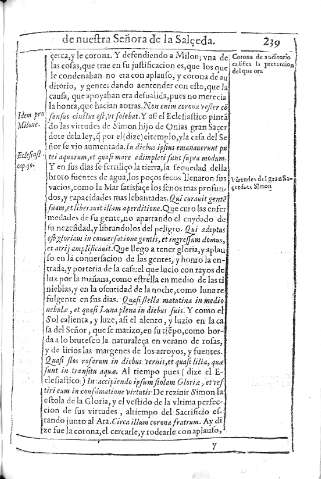 de nuestra Señora de la Salceda. 239
cerca, y le corona. Y defendiendo a Milon; vna de
las cosas, que trae en su justificacion es, que los que
le condenaban no era con aplauso, y corona de au
ditorio, y gente: dando aentender con esto, que la
causa, que apoyaban era desualida, pues no merecia
la honra, que hacian aotras. Non enim corona
consensus cinctus est, vt solebat. Y assi el Eclesiastico pinta
do las virtudes de Simon hijo de Onias gran Sacer
dote dela ley, dize (templo, y la casa del Se
ñor se vio aumentada. In diebus ipsius emanauerunt pu
tei aquarum, et quasi mare adimpleti sunt supra modum.
Y en sus dias se fertiliço la tierra, la sequedad della
broto fuentes de agua, los poços secos llenaron sus
vacios, como la Mar satisface los senos mas profun
dos, y capacidades mas hambreadas. Qui curauit gentē
suam, et liberauit illam a perditione. Que curo las enfer
medades de su gente, no apartando el cuydado de
su necesidad, y librandolos del peligro. Qui adeptus
est gloriam in conuersatione gentis, et ingressum domus,
et atrij amplificauit. Que llego a tener gloria, y aplau
so en la conuersacion de las gentes, y honro la en
trada, y porteria de la casa: el que lucio con rayos de
luz por la mañana, como estrella en medio de las ti
nieblas, y en la obscuridad de la noche, como luna re
fulgente en sus dias. Quasi stella matutina in medio
nebulæ, et quasi Luna plena in diebus suis. Y como el
Sol calienta, y luce, assi el alento, y luzio en la ca
sa del Señor, que se matizo, en su tiēpo, como bor-
da a lo brutesco la naturaleza en verano de rosas,
y de lirios las margenes de los arroyos, y fuentes.
Quasi flos rosarum in diebus vernis, et quasi lilia, quæ
sunt in transitu aquæ. Al tiempo pues (dize el E-
clesiastico) In accipiendo ipsum stolam Gloriæ, et ves
tiri eum in consummatione virtutis: De rezinir Simon la
estola de la Gloria, y el vestido de la vltima perfec-
cion de sus virtudes, altiempo del Sacrificio es-
tando junto al Ara. Circa illum corona fratrum. Ay di
ze fue la corona, el cercarle, y rodearle con aplauso,
y
Idem pro
Milone.
Eclesiast
cap. 50.
Corona de auditorio
califica la pretension
del que ora
Virtudes del gran Sa-
cerdote Simon